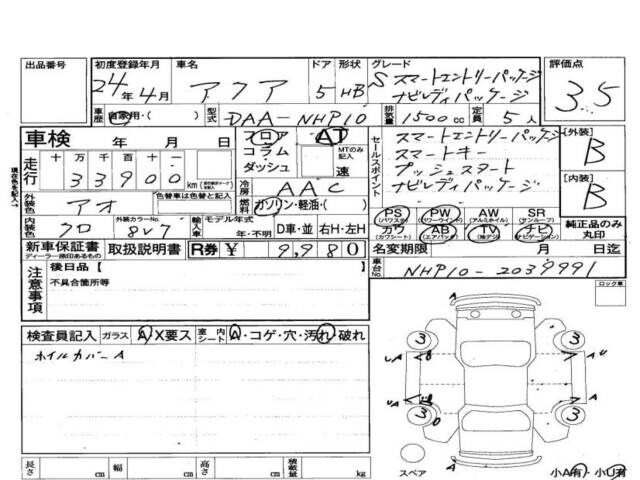 出品番号
初度登録年月
24年 4月
車名
アクア
ドア
5
形状
HB
グレード
S スマートエントリーパッケージ
ナビレディパッケージ
評価点
3.5
車歴
自家用・( )
型式
DAA-NHP10
排気量
1500cc
定員
5人
車検 年 月 日
フロア
コラム
ダッシュ
AT
MTのみ記入
速
セールスポイント
スマートエントリーパッケージ
スマートキー
プッシュスタート
ナビレディパッケージ
[外装]
B
[内装]
B
走行
十 万 千 百 十 一
33900
km
冷房
AAC
燃料
ガソリン・軽油・( )
外装色
アオ
色替車は色替前色
内装色
クロ
外装カラーNo.
8V7
輸入車
モデル年式
年・不明
D車・並
右H・左H
PS
(パワステ)
PW
(パワーウインド)
AW
(アルミホイル)
SR
(サンルーフ)
カワ
(カワシート)
AB
(エアバック)
TV
ナビ
(ナビゲーション)
純正品のみ
丸印
新車保証書
ディーラー捺印あるもの
取扱説明書
R券 ¥ 9,980
名変期限 月 日迄
車台No.
NHP10-2039991
注意事項
後日品[ ]
不具合箇所等
ロック車
検査員記入
ガラス
A・X要ス
室内シート
A・コゲ・穴・汚れ・破れ
ホイルカバーA
A
3
3
A
U
A
3
3
A
A
スペア
小A有・小U有
長さ cm
幅 cm
高さ cm
積載量 kg